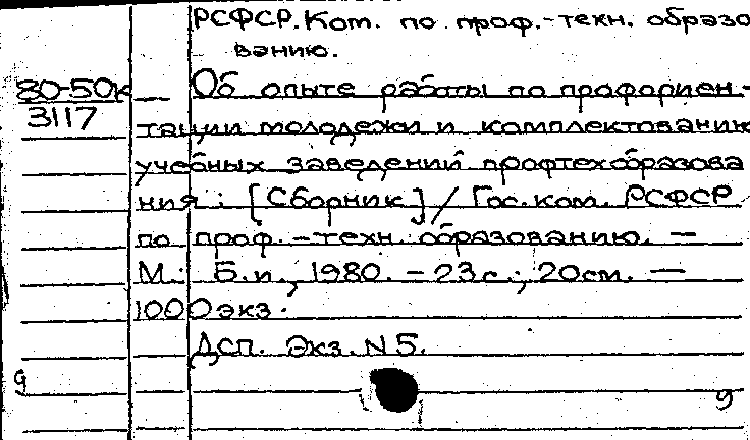 РСФСР. Ком. по проф.-техн. образо
ванию.
80-50к
3117
— Об опыте работы по профориен-
тации молодежи и комплектованию
учебных заведений профтехобразова
ния : [Сборник] / Гос. ком. РСФСР
по проф.-техн. образованию. —
М.: Б.и., 1980. - 23с.; 20см. —
1000экз.
Дсп. Экз. N5.
9
9